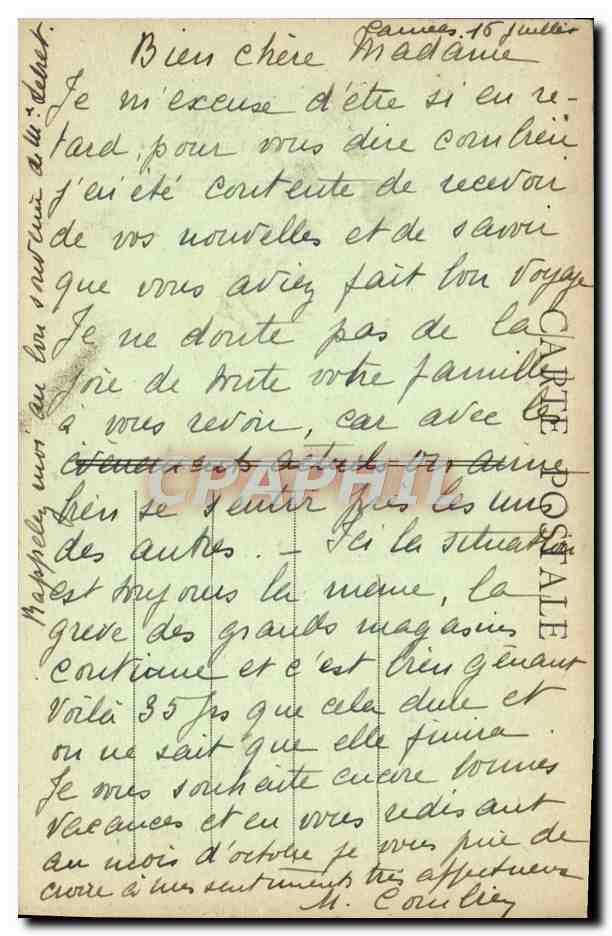 Cannes. 15 juillet
Bien chère Madame
Je m'excuse d'être si en re-
tard, pour vous dire combien
j'en été contente de recevoir
de vos nouvelles et de savoir
que vous aviez fait bon voyage
Je ne doute pas de la
joie de toute votre famille
à vous revoir, car avec les
évènements actuels on aime
bien se sentir près les uns
des autres. - Ici la situation
est toujours la même, la
grève des grands magasins
continue et c'est bien gênant
Voilà 35 jrs que cela dure et
on ne sait que elle finira
Je vous souhaite encore bonnes
vacances et en vous redisant
au mois d'octobre je vous prie de
croire à mes sentiments très affectueux
M. Combier
Rappelez moi au bon souvenir de Me
CARTE POSTALE
CPAPHIL